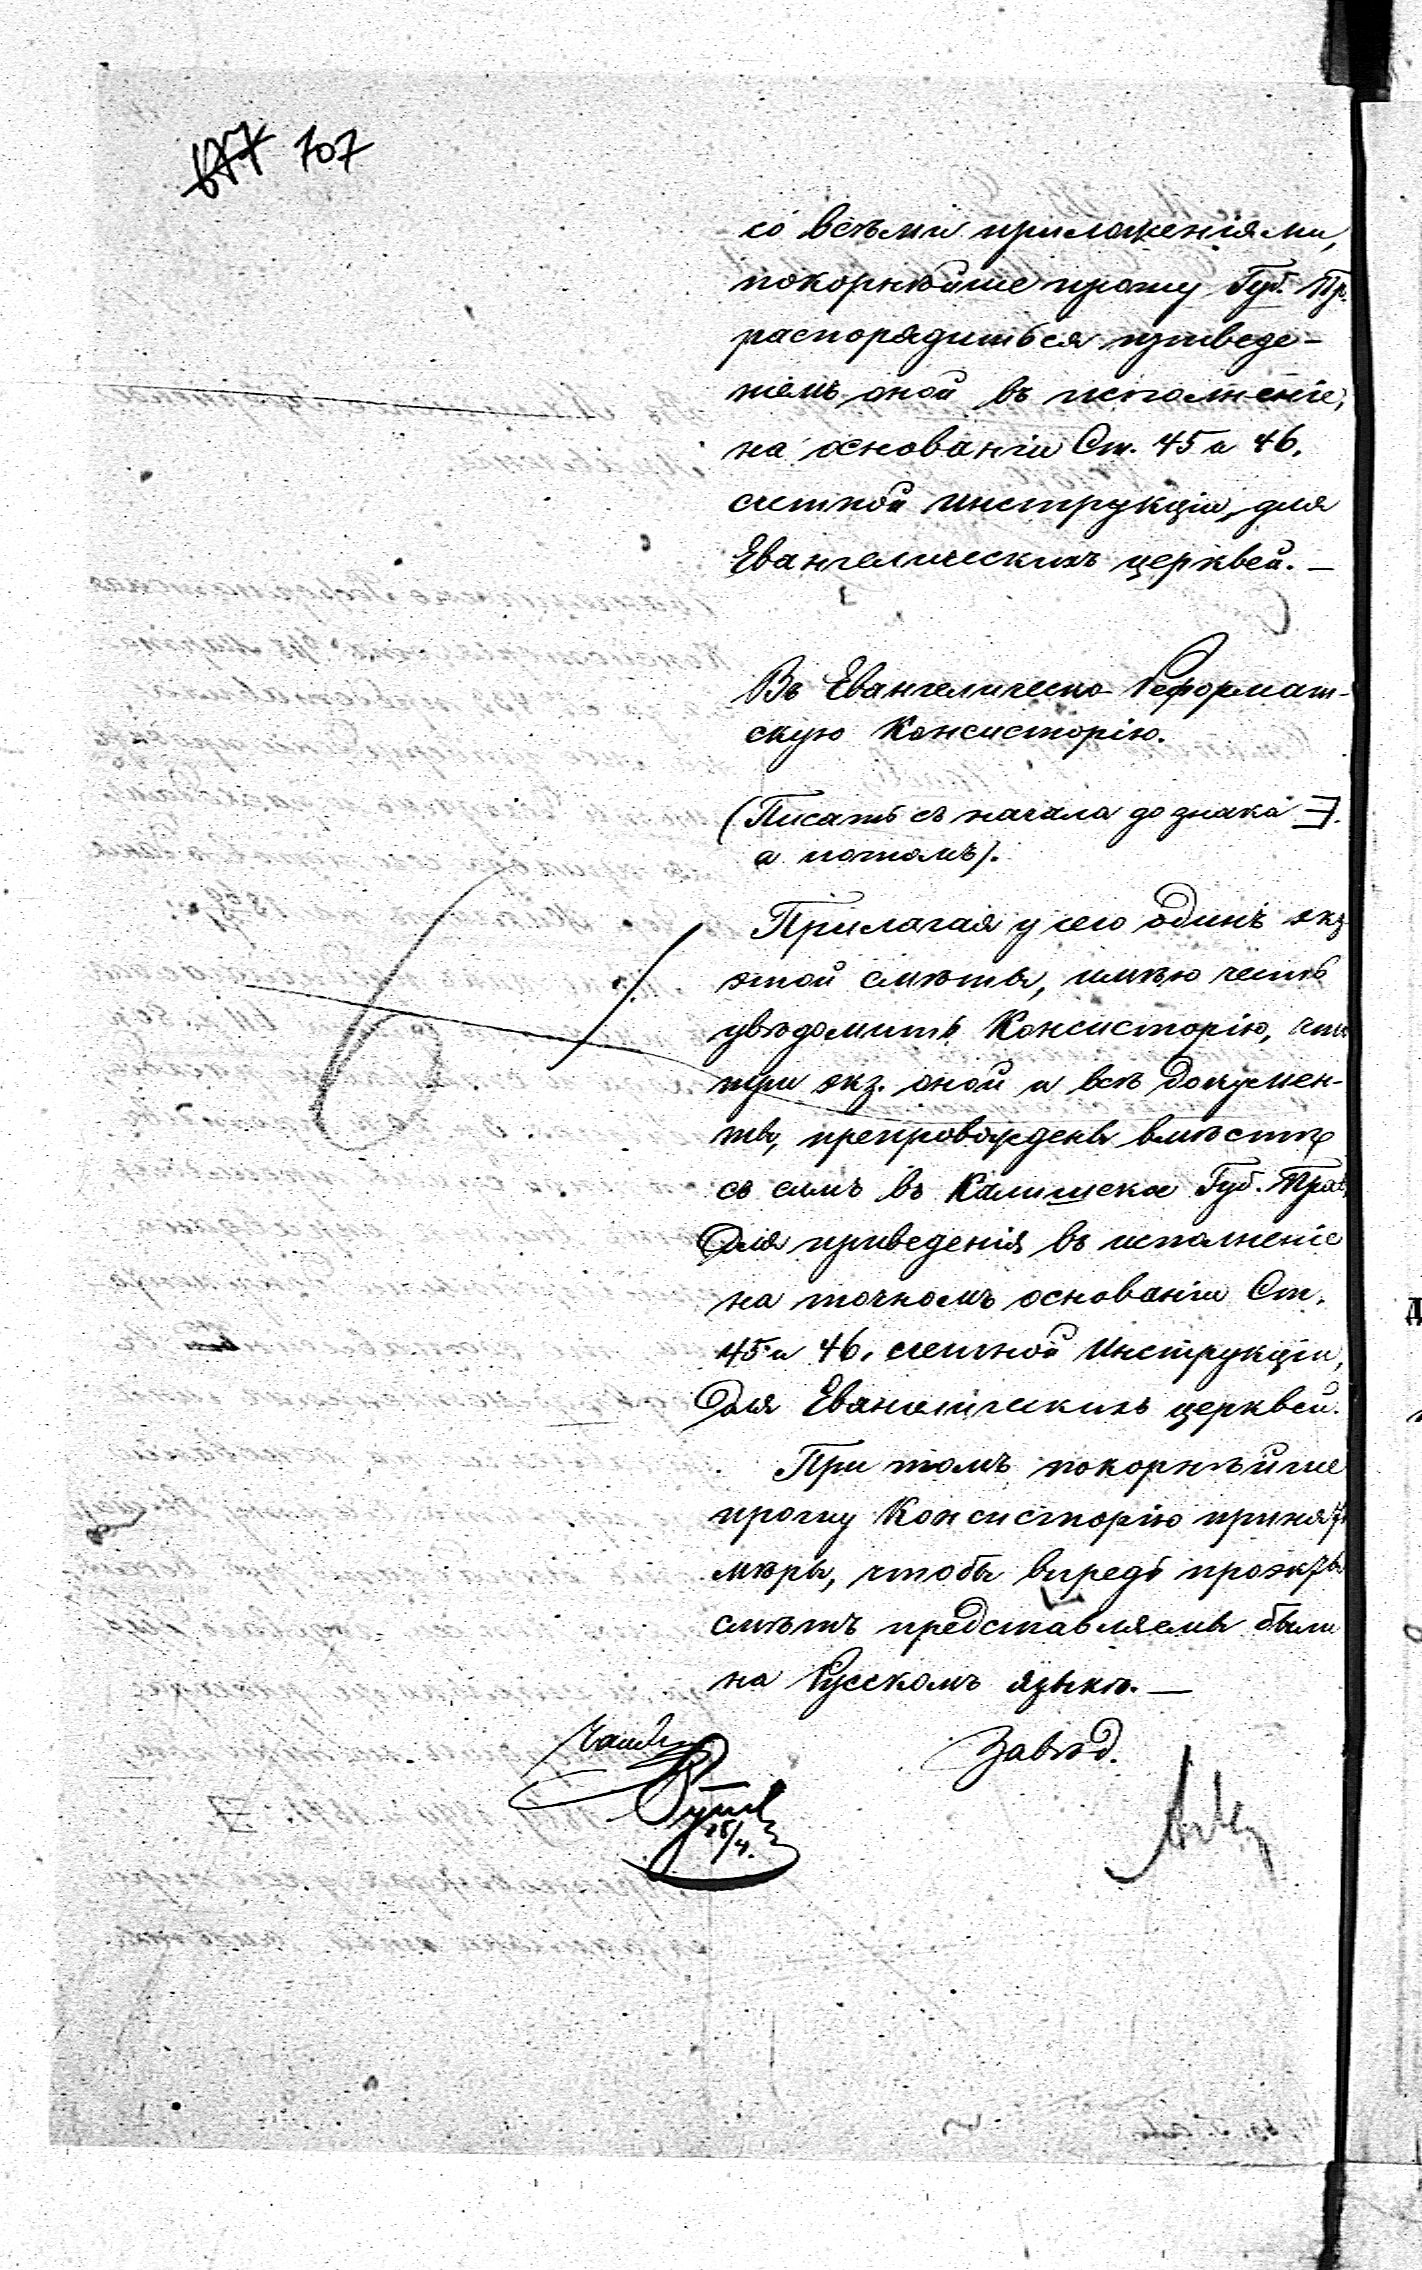 677 707
со всѣми приложеніями,
покорнѣйше прошу Губ. Пр.
распорядиться приведе-
ніемъ оной въ исполненіе,
на основаніи Ст. 45 и 46.
счетной инструкціи, для
Евангелическихъ церквей. —
Въ Евангелическо-Реформат-
скую Консисторію.
(Писать съ начала до знака
а потомъ).
Прилагая у сего одинъ экз
этой смѣты, имѣю честь
увѣдомить Консисторію, что
три экз. оной и всѣ докумен-
ты, препровождены вмѣстѣ
съ симъ въ Калишское Губ. Прав.
для приведенія въ исполненіе
на точномъ основаніи Ст.
45 и 46. счетной Инструкціи,
для Евангелическихъ церквей.
При томъ покорнѣйше
прошу Консисторію принять
мѣры, чтобы впредь проэкты
смѣтъ представляемы были
на Русскомъ языкѣ. —
Завѣд.